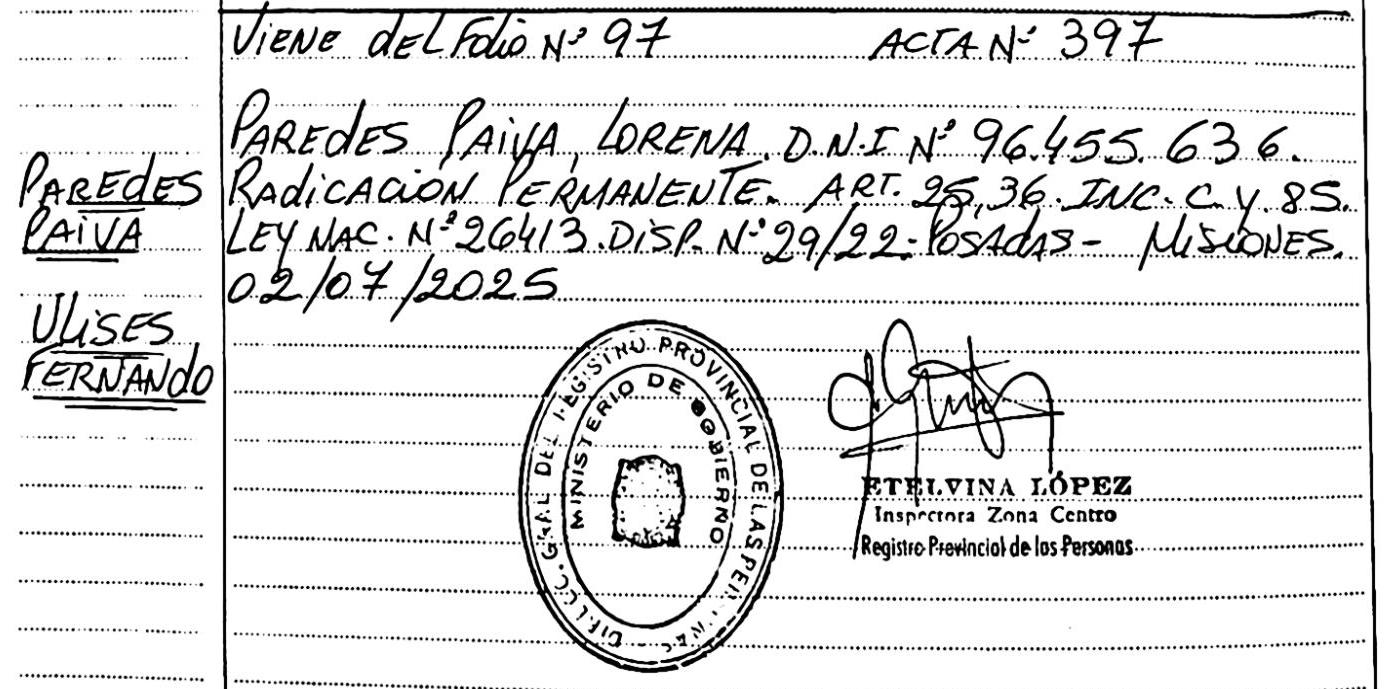 Viene del Folio Nº 97 ACTA Nº 397
PAREdES PAiVA, LORENA. D.N.I Nº 96.455.636.
RAdiCACiÓN PERMANENTE. ART. 25,36. INC. C. y 85.
LEY NAC. Nº 26413. DiSP. Nº 29/22. POSAdAS - MiSiONES.
02/07/2025
PAREdES
PAiVA
ULiSES
FERNANdO
DIRECC. GRAL DEL REGISTRO PROVINCIAL DE LAS PERSONAS
MINISTERIO DE GOBIERNO
ETELVINA LÓPEZ
Inspectora Zona Centro
Registro Provincial de las Personas